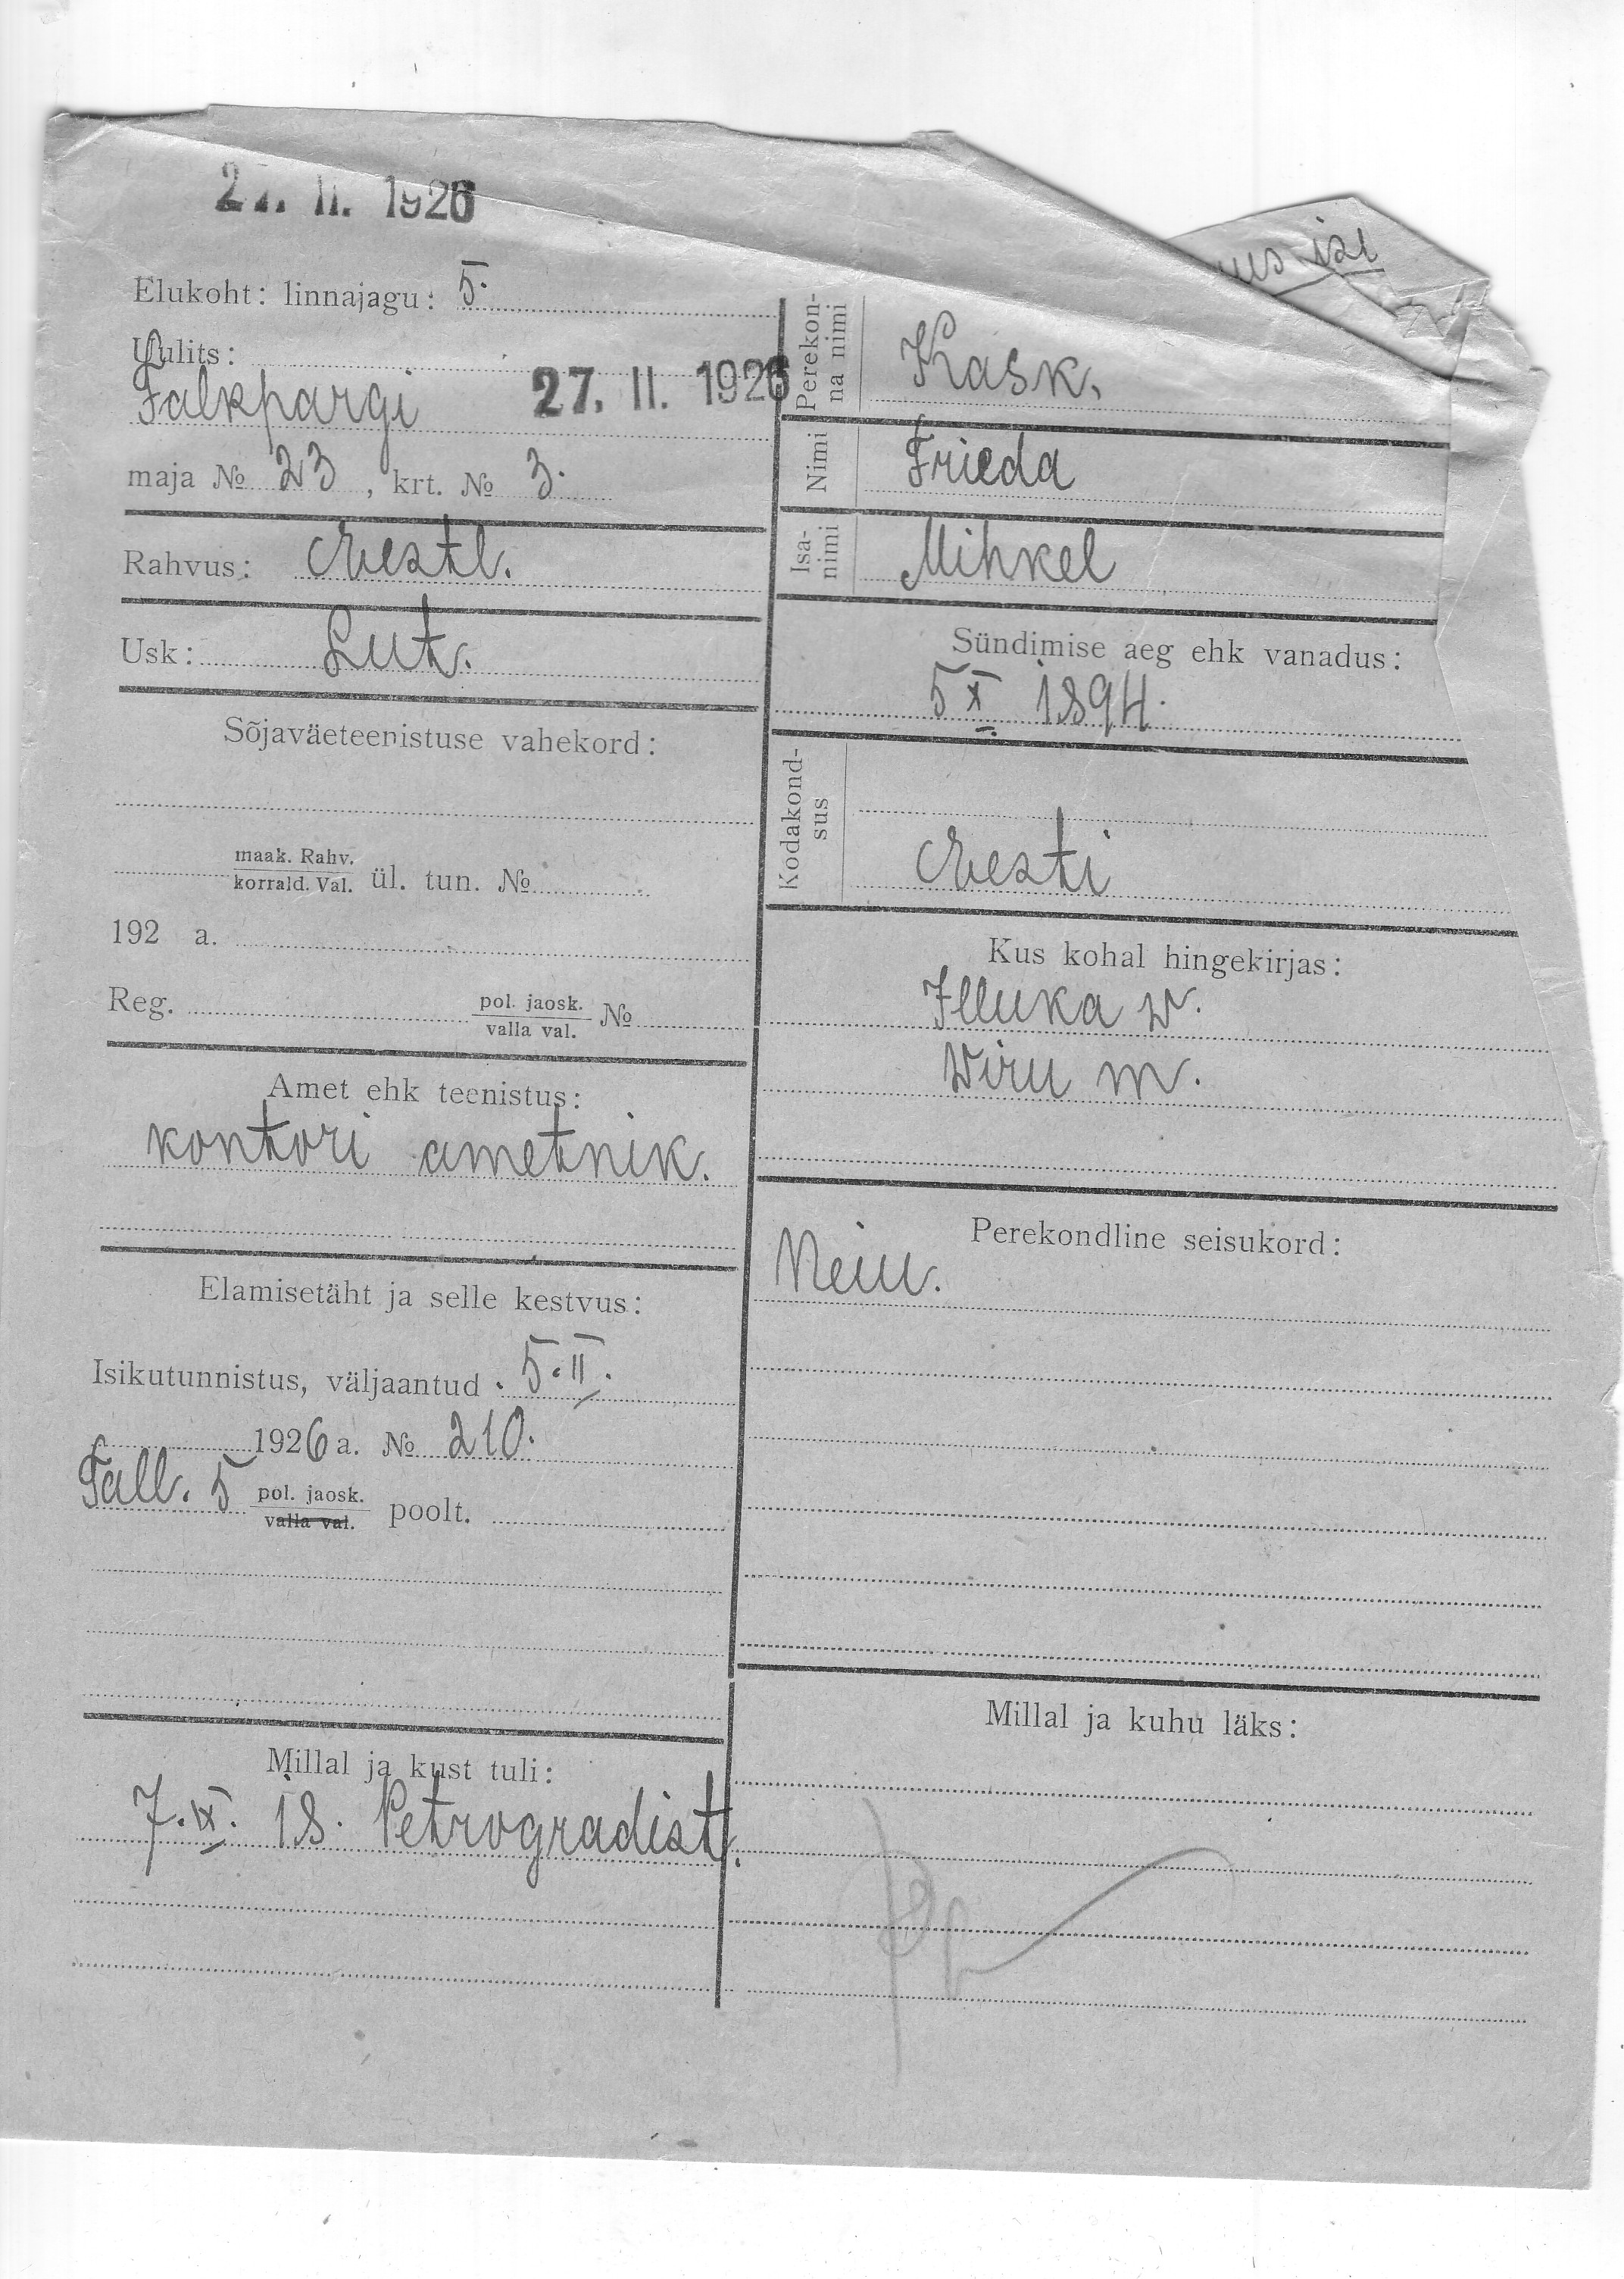 27. II. 1926
Elukoht: linnajagu: 5.
Uulits:
Falkpargi 27. II. 1926
maja № 23, krt. № 3.
Rahvus: Eestl.
Usk: Lut.
Sõjaväeteenistuse vahekord:
maak. Rahv.
korrald. Val. ül. tun. №
192 a.
Reg. pol. jaosk.
valla val. №
Amet ehk teenistus:
kontori ametnik.
Elamisetäht ja selle kestvus:
Isikutunnistus, väljaantud 5. II.
1926 a. № 210.
Tall. 5 pol. jaosk.
valla val. poolt.
Millal ja kust tuli:
7. IX. 18. Petrogradist.
Perekon-
na nimi
Kask.
Nimi
Frieda
Isa-
nimi
Mihkel
Sündimise aeg ehk vanadus:
5 X 1894.
Kodakond-
sus
Eesti
Kus kohal hingekirjas:
Illuka w.
Wiru m.
Perekondline seisukord:
Neiu.
Millal ja kuhu läks: